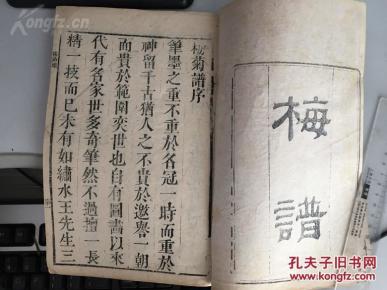 梅譜
梅菊譜序
筆墨之重不重於名冠一時而重於
神留千古猶人之不貴於邀譽一朝
而貴於範圍奕世也自有圖書以來
代有名家世多奇筆然不過擅一長
精一技而已未有如繡水王先生三
Kongfz.cn
孔夫子旧书网